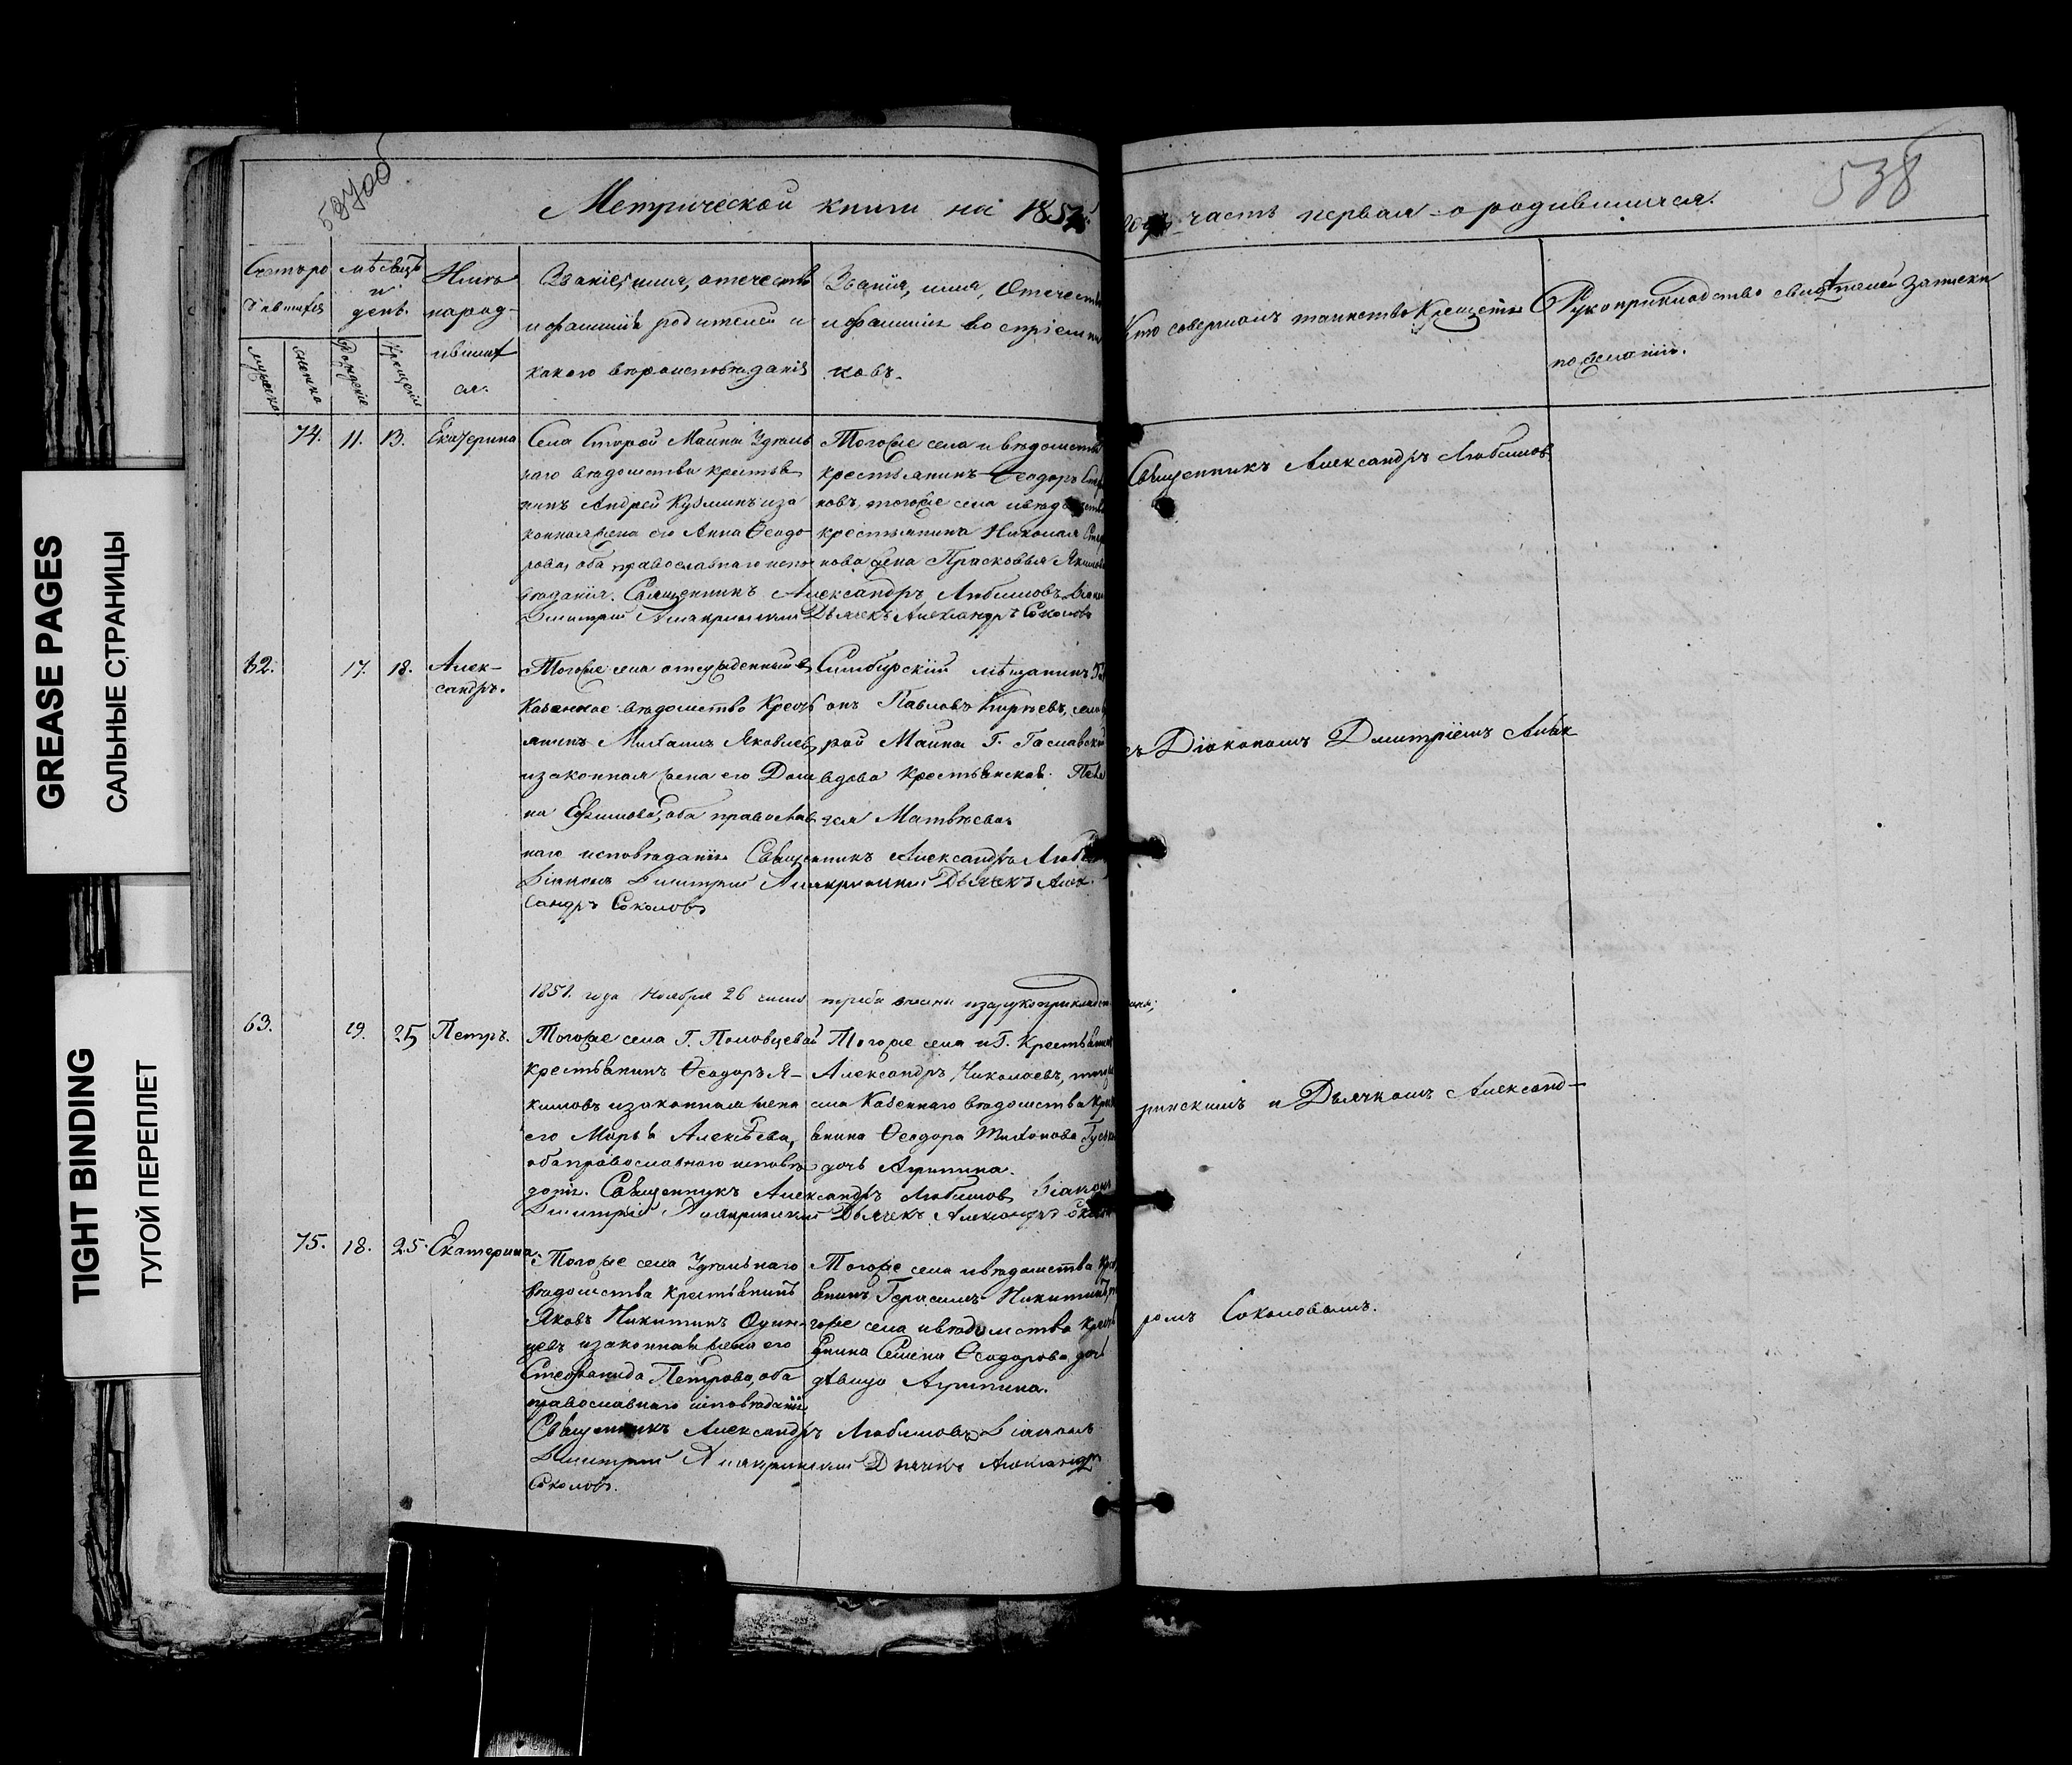 GREASE PAGES
САЛЬНЫЕ СТРАНИЦЫ
TIGHT BINDING
ТУГОЙ ПЕРЕПЛЕТ
537 об
538
Метрической книги на 1851.
годъ часть первая о родившихся.
мѣсяцъ
и
день.
Имя
народ-
ивших
ся.
Званіе, имя, отечество
и фамилія родителей и
какого вѣроисповѣданія
Званія, имя, отечество
и фамилія воспріемни
ковъ.
Кто совершалъ таинство Крещенія
Рукоприкладство свидѣтелей записки
по желанію.
мужеска
женска
Рожденіе
Крещеніе
74. 11. 13. Екатерина
Села Старой Майны Удѣль
наго вѣдомства крестья
нинъ Андрей Кузминъ и за
конная жена его Анна Ѳеодо
рова, оба православнаго испо
вѣданія. Священникъ Александръ Любимовъ
Димитрій Дьячекъ Александръ Соколовъ
Тогоже села и вѣдомства
крестьянинъ Ѳеодоръ
новъ, тогоже села и вѣдомства
крестьянина Николая
нова жена Прасковья
Священникъ Александръ Любимовъ
62. 17. 18. Алек-
сандръ.
Тогоже села отсужденный въ
Казенное вѣдомство Кресть
янинъ Михаилъ Яковлевъ
и законная жена его Дом
на Ефимова, оба православ
наго исповѣданія Священникъ Александръ
Діаконъ Димитрій Дьячекъ Алек
сандръ Соколовъ
Симбирскій мѣщанинъ
онъ Павловъ
рой Майны Г.
вдова Крестьянская
гея Матвѣева.
съ Діакономъ Дмитріемъ
1851. года Ноября 26 числа
63. 19. 25 Петръ.
Тогоже села Г. Половцевой
Крестьянинъ Ѳеодоръ Я-
кимовъ и законная жена
его Марья Алексѣева,
оба православнаго исповѣ
данія. Священникъ Александръ Любимовъ Діаконъ
Димитрій Дьячекъ Александръ
Тогоже села и Г. Крестьянинъ
Александръ Николаевъ,
села Казеннаго вѣдомства
янина Ѳеодора Тихонова
дочь Агрипина.
ринскимъ и Дьячкомъ Александ-
75. 18. 25. Екатерина.
Тогоже села Удѣльнаго
вѣдомства Крестьянинъ
Яковъ Никитинъ Один-
цевъ и законная жена его
Стефанида Петрова, оба
православнаго исповѣданія
Священникъ Александръ Любимовъ Діаконъ
Димитрій Дьячекъ Александръ
Соколовъ.
Тогоже села и вѣдомства
янинъ Герасимъ Никитинъ,
гоже села и вѣдомства
янина Семена Ѳеодорова дочь
дѣвица Агрипина.
ромъ Соколовымъ.